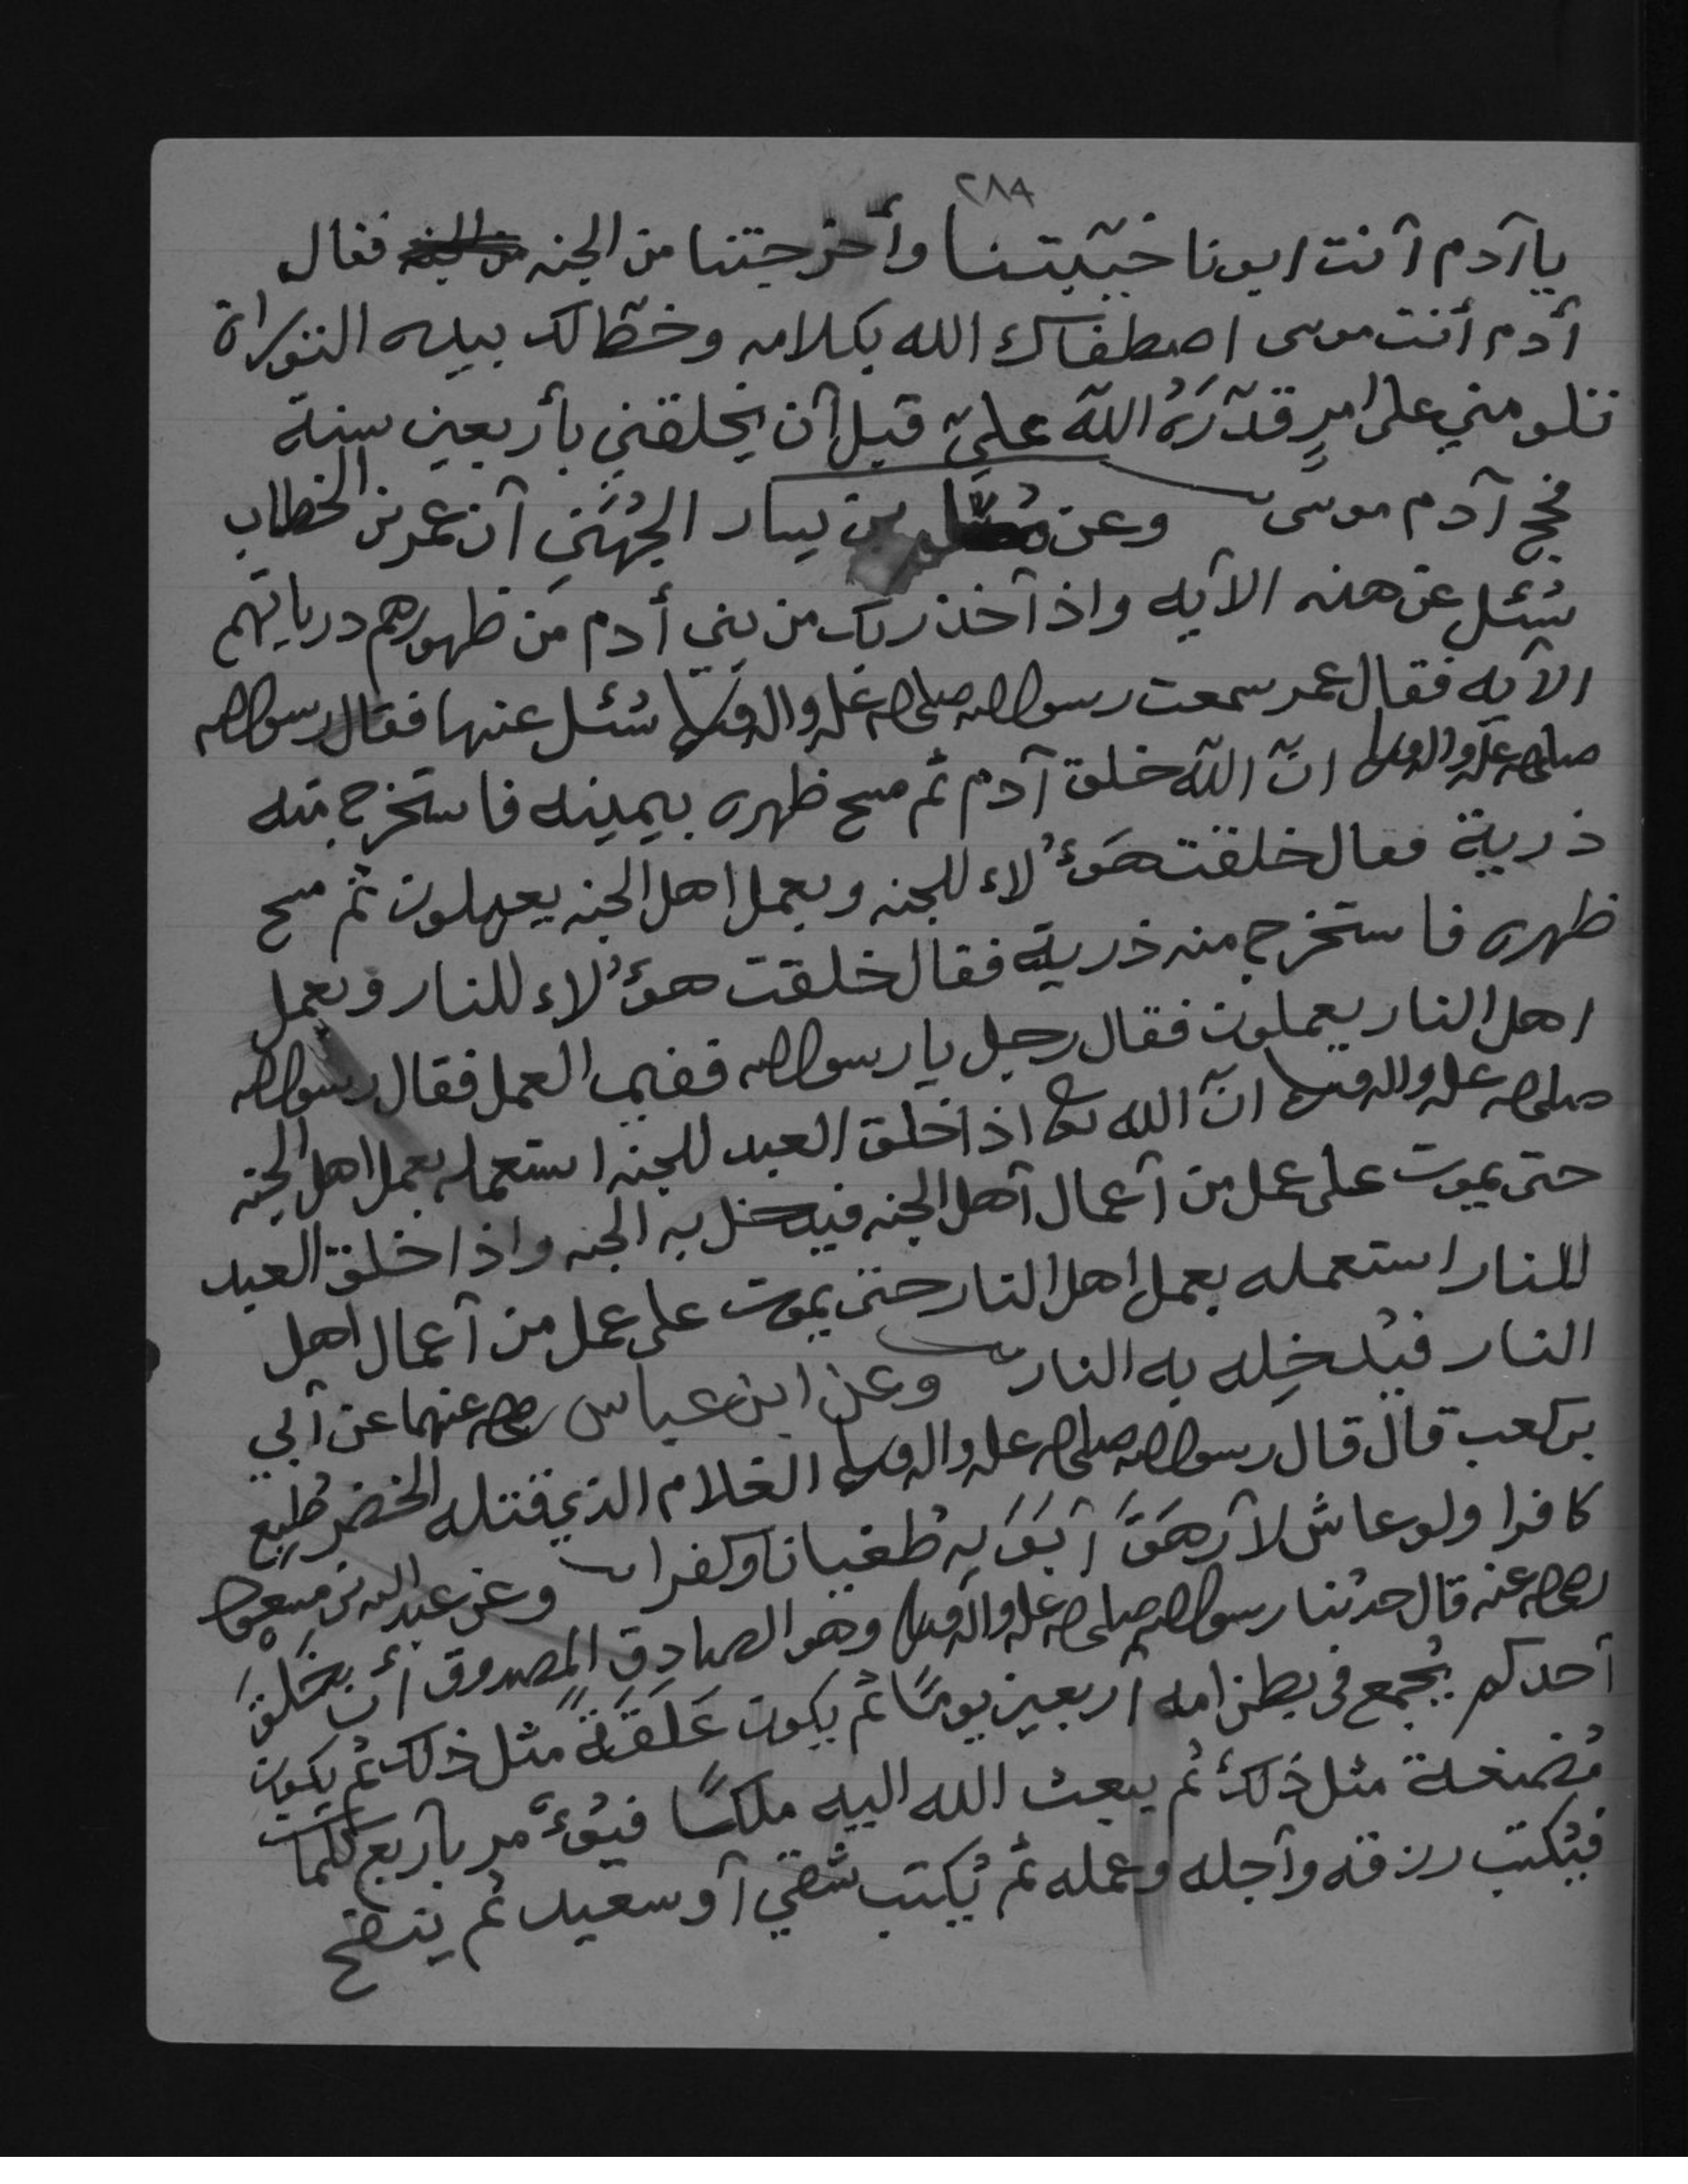 ٢٨٩
يا آدم أنت ابونا خيّبتنا وأخرجتنا من الجنه من الجنه فقال
أدم أنت موسى اصطفاك الله بكلامه وخطّ لك بيده التوراة
تلومني على امرٍ قدّرَهُ اللّه عليّ قبل أن يخلقني بأربعين سنة
فحج آدم موسى وعن بن يسار الجُهَني أن عمر بن الخطاب
سُئل عن هذه الآيه واذ أخذ ربك من بني أدم من ظهورهم درياتهم
الآيه فقال عمر سمعت رسول الله صلى الله عليه واله وسلم سُئل عنها فقال رسول الله
صلى الله عليه واله وسلم انّ اللّه خلق آدم ثم مسح ظهره بيمينه فاستخرج منه
ذرية فقال خلقت هَؤُلاء للجنه وبعمل اهل الجنه يعملون ثم مسح
ظهره فاستخرج منه ذرية فقال خلقت هؤُلاء للنار وبعمل
اهل النار يعملون فقال رجل يا رسول الله ففيم العمل فقال رسول الله
صلى الله عليه واله وسلم انّ الله تعالى اذا خلق العبد للجنه استعمله بعمل اهل الجنه
حتى يموت على عمل من أعمال أهل الجنه فيدخل به الجنه واذا خلق العبد
للنار استعمله بعمل اهل النار حتى يموت على عمل من أعمال اهل
النار فيُدخِله به النار وعن ابن عباس رضي الله عنهما عن أبي
بن كعب قال قال رسول الله صلى الله عليه واله وسلم الغلام الذي قتله الخضر طُبِع
كافرا ولو عاش لأرهَقَ أبَوَيه طُغيانا وكفرا وعن عبد الله بن مسعود
رضي الله عنه قال حدثنا رسول الله صلى الله عليه واله وسلم وهو الصادق المصدوق أن خَلقَ
أحدكم يُجمع في بطن امه أربعين يومًا ثم يكون عَلقَةً مثل ذلك ثم يكون
مُضغة مثل ذلك ثُم يبعث الله اليه ملكًا فيُؤمر بأربع كلمات
فيُكتب رزقه وأجله وعمله ثم يُكتب شقي أو سعيد ثُم ينفخ